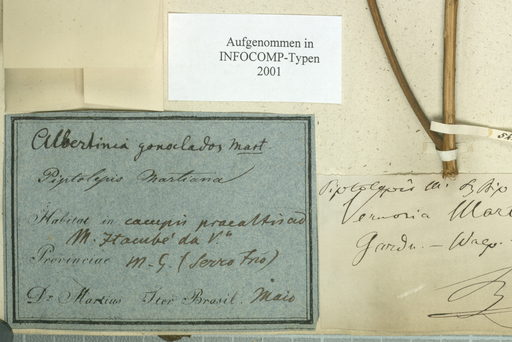 Aufgenommen in
INFOCOMP-Typen
2001
Albertinia gonoclados Mart
Piptolepis Martiana
Habitat in campis praealtis ad
M. Itambé da Va
Provinciae M. G. (Serro Frio)
Dr. Martius Iter Brasil. Maio
Piptolepis
Vernonia Mart
Gardn. – Walp.